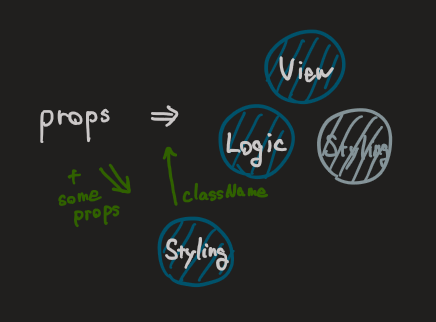 View
props ⇒
Logic
Styling
+
some
props
className
Styling